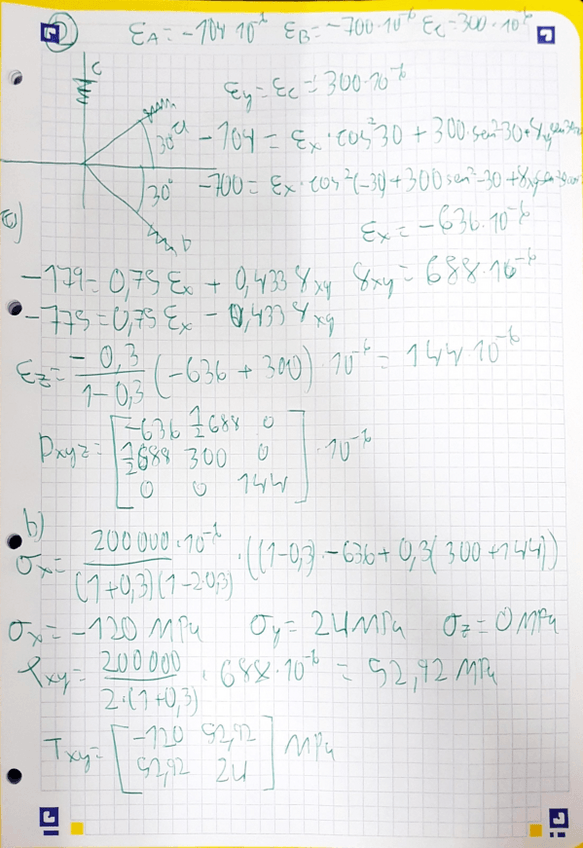 1 εA = -104·10⁻⁶ εB = -700·10⁻⁶ εC = 300·10⁻⁶
c
εy = εC = 300·10⁻⁶
a
30°
-104 = εx·cos²30 + 300·sen²30 + γxy
30°
-700 = εx·cos²(-30) + 300 sen²-30 + γxy
b
εx = -636·10⁻⁶
a)
-179 = 0,75 εx + 0,433 γxy γxy = 688·10⁻⁶
-775 = 0,75 εx - 0,433 γxy
εz = -0,3/(1-0,3) (-636 + 300)·10⁻⁶ = 144·10⁻⁶
Dxyz = [-636 ½688 0
½688 300 0
0 0 144]·10⁻⁶
b)
σx = 200000·10⁻⁶/((1+0,3)(1-2·0,3))·((1-0,3)·-636 + 0,3(300+144))
σx = -120 MPa σy = 24 MPa σz = 0 MPa
τxy = 200000/(2·(1+0,3))·688·10⁻⁶ = 52,92 MPa
Txy = [-120 52,92
52,92 24] MPa